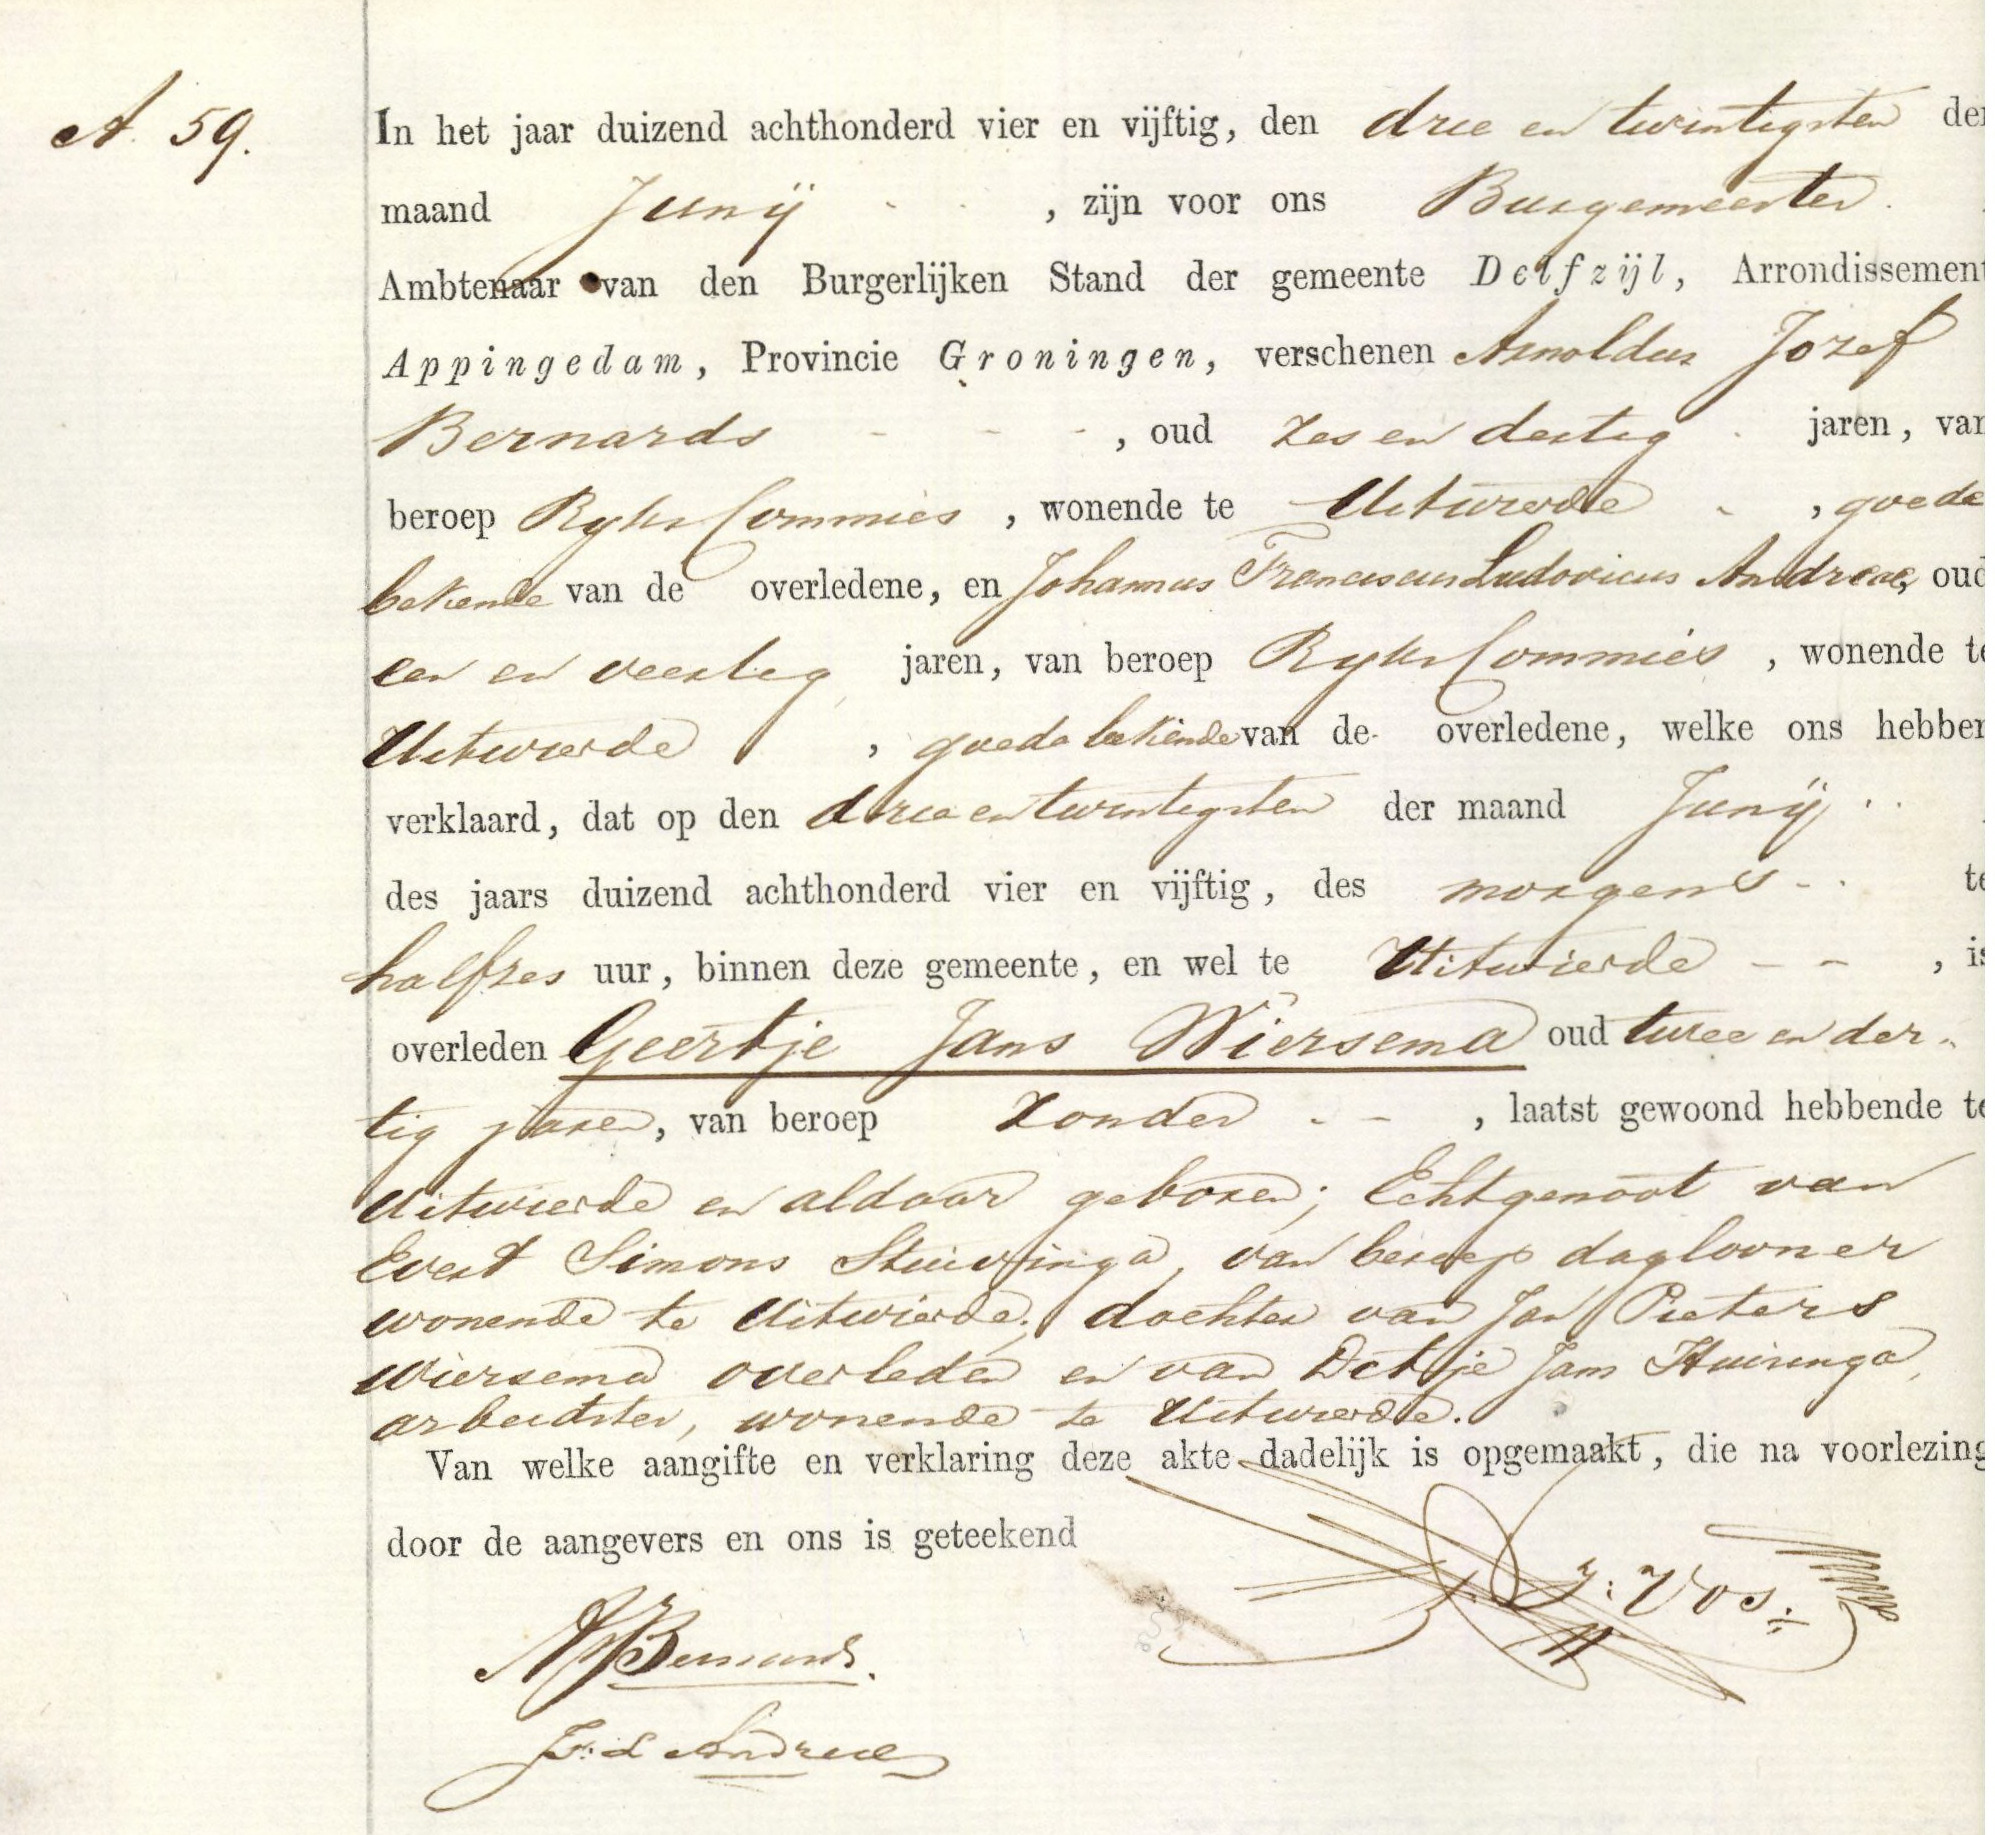 A. 59.
In het jaar duizend achthonderd vier en vijftig, den drie en twintigsten der
maand Junij - - , zijn voor ons Burgemeester.
Ambtenaar van den Burgerlijken Stand der gemeente Delfzijl, Arrondissement
Appingedam, Provincie Groningen, verschenen Arnoldus Jozef
Bernards - - - , oud zes en dertig - jaren, van
beroep Ryks Commies , wonende te Uitwierde - , goede
bekende van de overledene, en Johannus Franciscus Ludovicus Andreae, oud
een en veertig jaren, van beroep Ryks Commies , wonende te
Uitwierde , goede bekende van de- overledene, welke ons hebben
verklaard, dat op den drie en twintigsten der maand Junij . .
des jaars duizend achthonderd vier en vijftig, des morgens - . te
half zes uur, binnen deze gemeente, en wel te Uitwierde - - , is
overleden Geertje Jans Wiersema oud twee en der-
tig jaren, van beroep Zonder - - , laatst gewoond hebbende te
Uitwierde en aldaar geboren; Echtgenoot van
Evert Simons Stuivinga, van beroep daglooner
wonende te Uitwierde; dochter van Jan Pieters
Wiersema overleden en van Detje Jans Huizinga,
arbeidster, wonende te Uitwierde.
Van welke aangifte en verklaring deze akte dadelijk is opgemaakt, die na voorlezing
door de aangevers en ons is geteekend
J: Vos.
AJBernards.
J.F.L Andreae